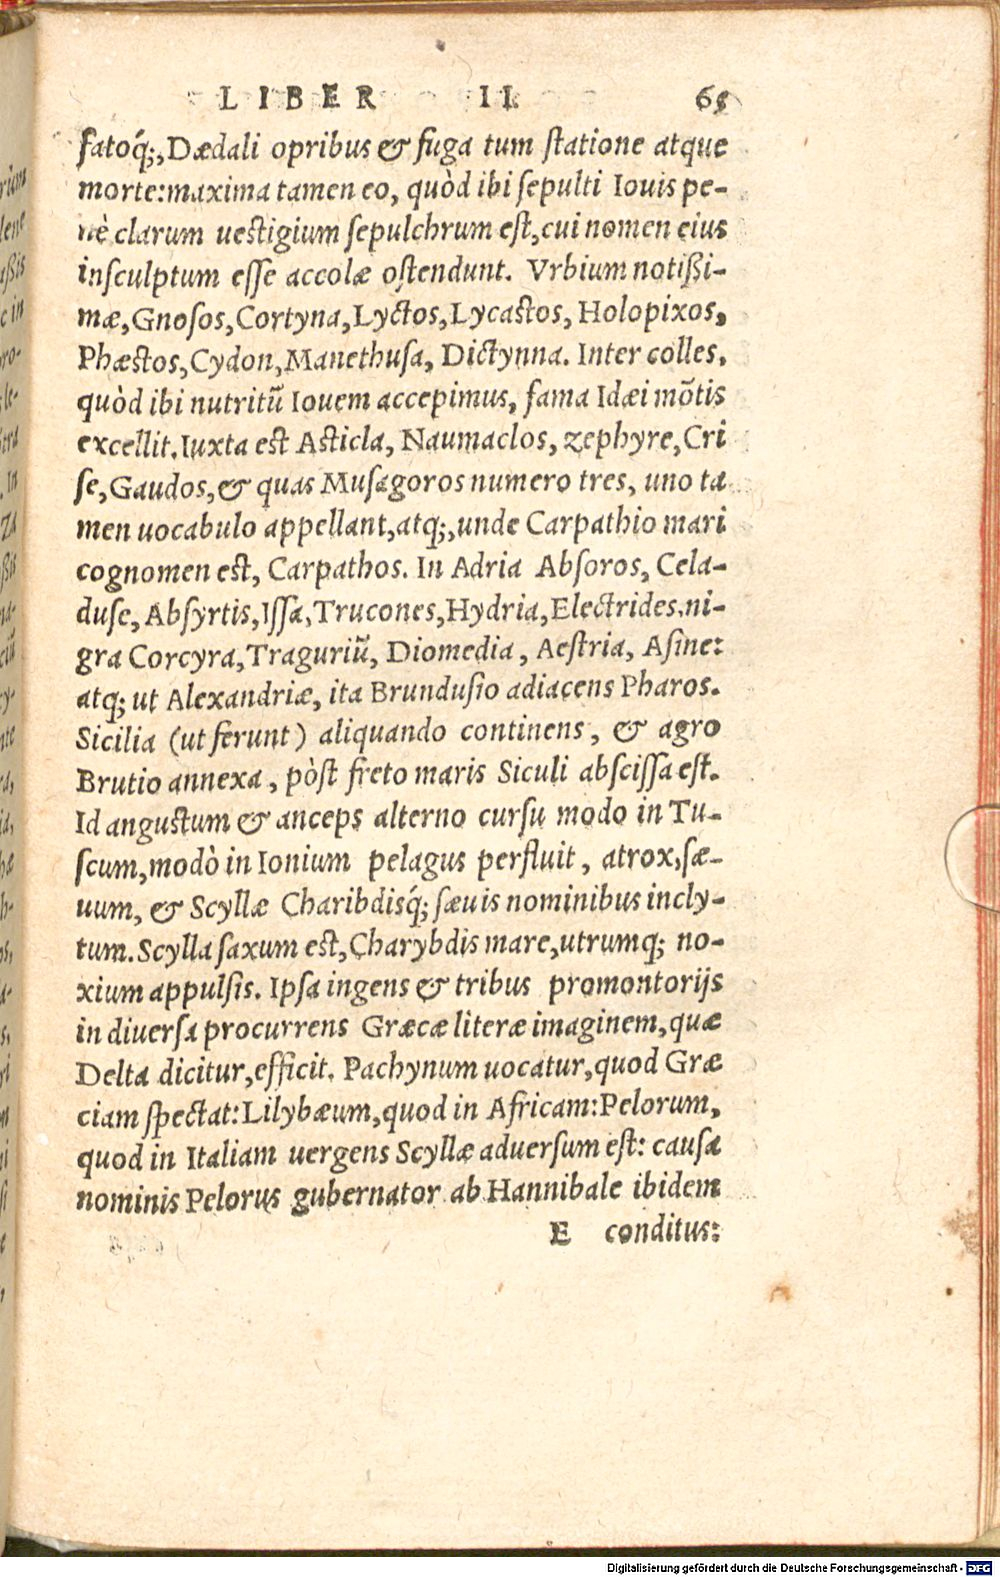 LIBER II 65
fatoq́;, Dædali opribus & fuga tum statione atque
morte: maxima tamen eo, quòd ibi sepulti Iouis pe-
nè clarum uestigium sepulchrum est, cui nomen eius
insculptum esse accolæ ostendunt. Vrbium notißi-
mæ, Gnosos, Cortyna, Lyctos, Lycastos, Holopixos,
Phæstos, Cydon, Manethusa, Dictynna. Inter colles,
quòd ibi nutritũ Iouem accepimus, fama Idæi mõtis
excellit. Iuxta est Asticla, Naumaclos, zephyre, Cri
se, Gaudos, & quas Musagoros numero tres, uno ta
men uocabulo appellant, atq;, unde Carpathio mari
cognomen est, Carpathos. In Adria Absoros, Cela-
duse, Absyrtis, Issa, Trucones, Hydria, Electrides, ni-
gra Corcyra, Traguriũ, Diomedia, Aestria, Asine:
atq; ut Alexandriæ, ita Brundusio adiacens Pharos.
Sicilia (ut ferunt) aliquando continens, & agro
Brutio annexa, pòst freto maris Siculi abscissa est.
Id angustum & anceps alterno cursu modo in Tu-
scum, modò in Ionium pelagus perfluit, atrox, sæ-
uum, & Scyllæ Charibdisq́; sæuis nominibus incly-
tum. Scylla saxum est, Charybdis mare, utrumq; no-
xium appulsis. Ipsa ingens & tribus promontorijs
in diuersa procurrens Græcæ literæ imaginem, quæ
Delta dicitur, efficit. Pachynum uocatur, quod Græ
ciam spectat: Lilybæum, quod in Africam: Pelorum,
quod in Italiam uergens Scyllæ aduersum est: causa
nominis Pelorus gubernator ab Hannibale ibidem
E conditus:
Digitalisierung gefördert durch die Deutsche Forschungsgemeinschaft - DFG